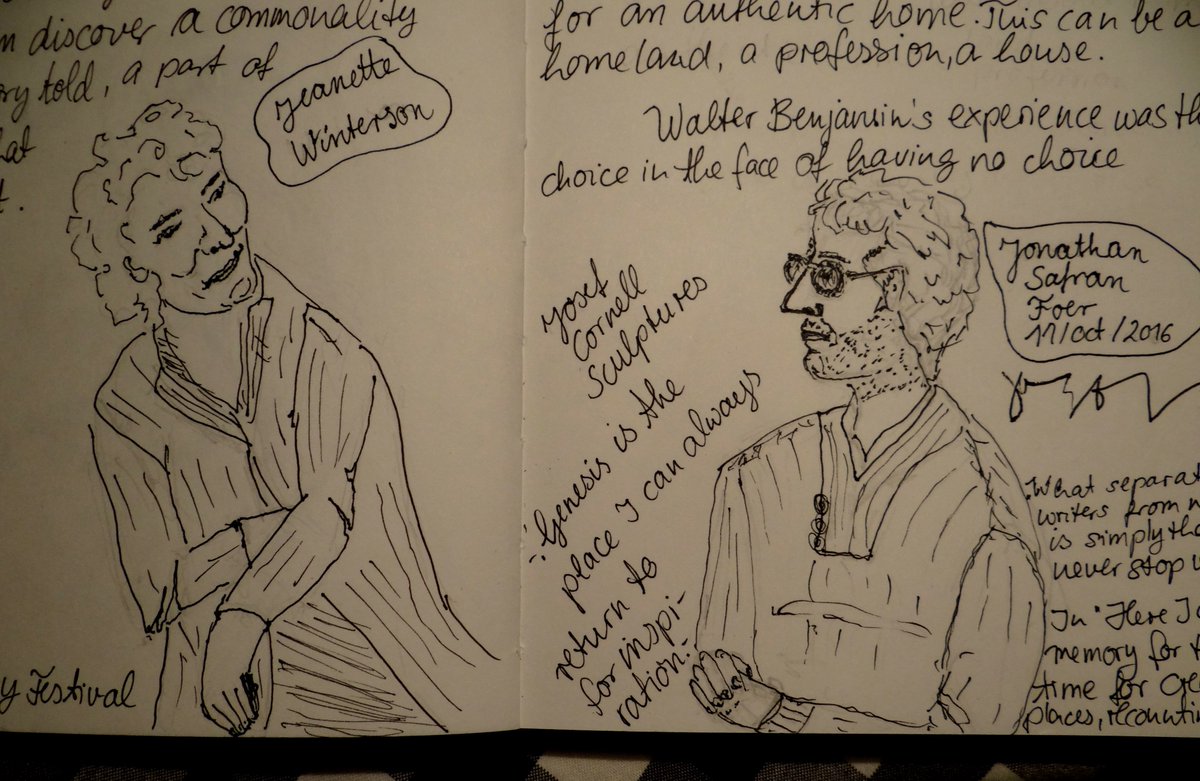 discover a commonality
told, a part of
Jeanette
Winterson
Festival
for an authentic home. This can be a
homeland, a profession, a house.
Walter Benjamin's experience was
choice in the face of having no choice
Josef
Cornell
Sculptures
"Genesis is the
place I can always
return to
for inspi-
ration."
Jonathan
Safran
Foer
11/Oct/2016
What
writers from
is simply
never stop
In "Here
memory for
time for
places,